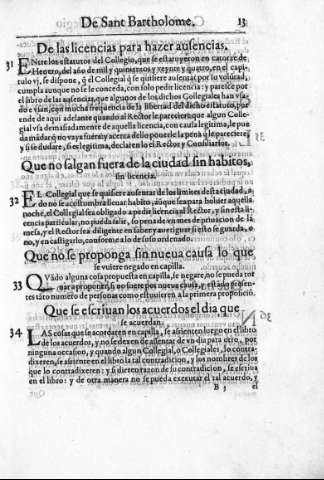 De Sant Bartholome. 13
De las licencias para hazer ausencias.
31 ENtre los estatutos del Collegio, que se estatuyeron en catorze de
Henero, del año de mil y quinientos y veynte y quatro, en el capi-
tulo vj, se dispone, q̃ el Collegial q̃ se quisiere ausentar por su volũtad,
cumpla aunque no se le conceda, con solo pedir licencia: y parece por
el libro de las ausencias, que algunos de los dichos Collegiales han vsa-
do con mucha frequencia de la libertad del dicho estatuto, por
ende de aqui adelante quando al Rector le pareciere que algun Colle-
gial vsa demasiadamente de aquella licencia, con causa legitima, le pue
da mãdar q̃ no vaya fuera y acerca dello ponerle la pena q̃ le pareciere:
y si se dudare, si es legitima, declarenlo el Rector y Consiliarios.
Que no salgan fuera de la ciudad sin habitos,
sin licencia.
32 EL Collegial que se quisiere ausentar de los limites desta ciudad, a
do no se acostumbra lleuar habito, aũque sea para boluer aquella
noche, el Collegial sea obligado a pedir licencia al Rector, y sin esta li-
cencia particular, no pueda salir, so pena de vn mes de priuacion de la
mesa, y el Rector sea diligente en saber y aueriguar si esto se guarda, o
no, y en castigarlo, conforme a lo de suso ordenado.
Que no se proponga sin nueua causa lo que
se vuiere negado en capilla.
33 QVãdo alguna cosa propuesta en capilla, se negare, no se pueda tor
nar a proponer, si no fuere por nueua causa, y estando presen-
tes tãto numero de personas como estuuieron a la primera proposiciõ.
Que se escriuan los acuerdos el dia que
se acuerdan.
34 LAS cosas que se acordaren en capilla, se assienten luego en el libro
de los acuerdos, y no se dexen de assentar de vn dia para otro, por
ninguna occasion, y quando algun Collegial, o Collegiales, lo contra-
dixeren, se assiente en el libro la tal contradicion, y los nombres de los
que lo contradixeren: y si dieren razon de su contradicion, se escriua
en el libro: y de otra manera no se pueda executar el tal acuerdo, y
B 3 el